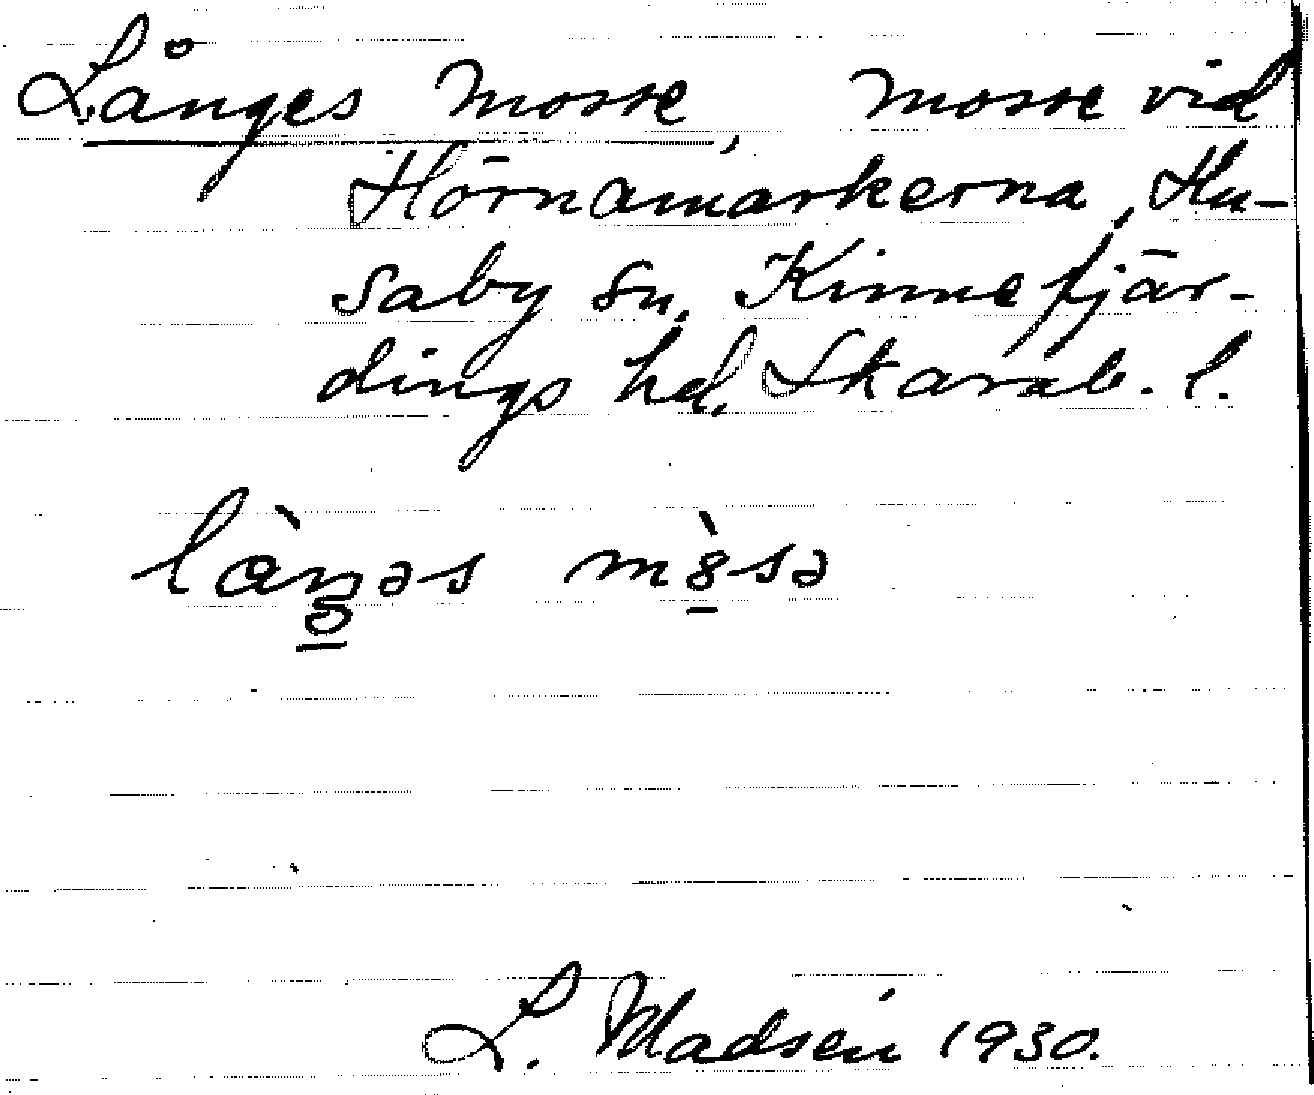 Långes mosse, mosse vid
Hörnamarkerna, Hu-
saby sn, Kinnefjär-
dings hd, Skarab. l.
làŋəs m8̀sə
L. Madsén 1930.